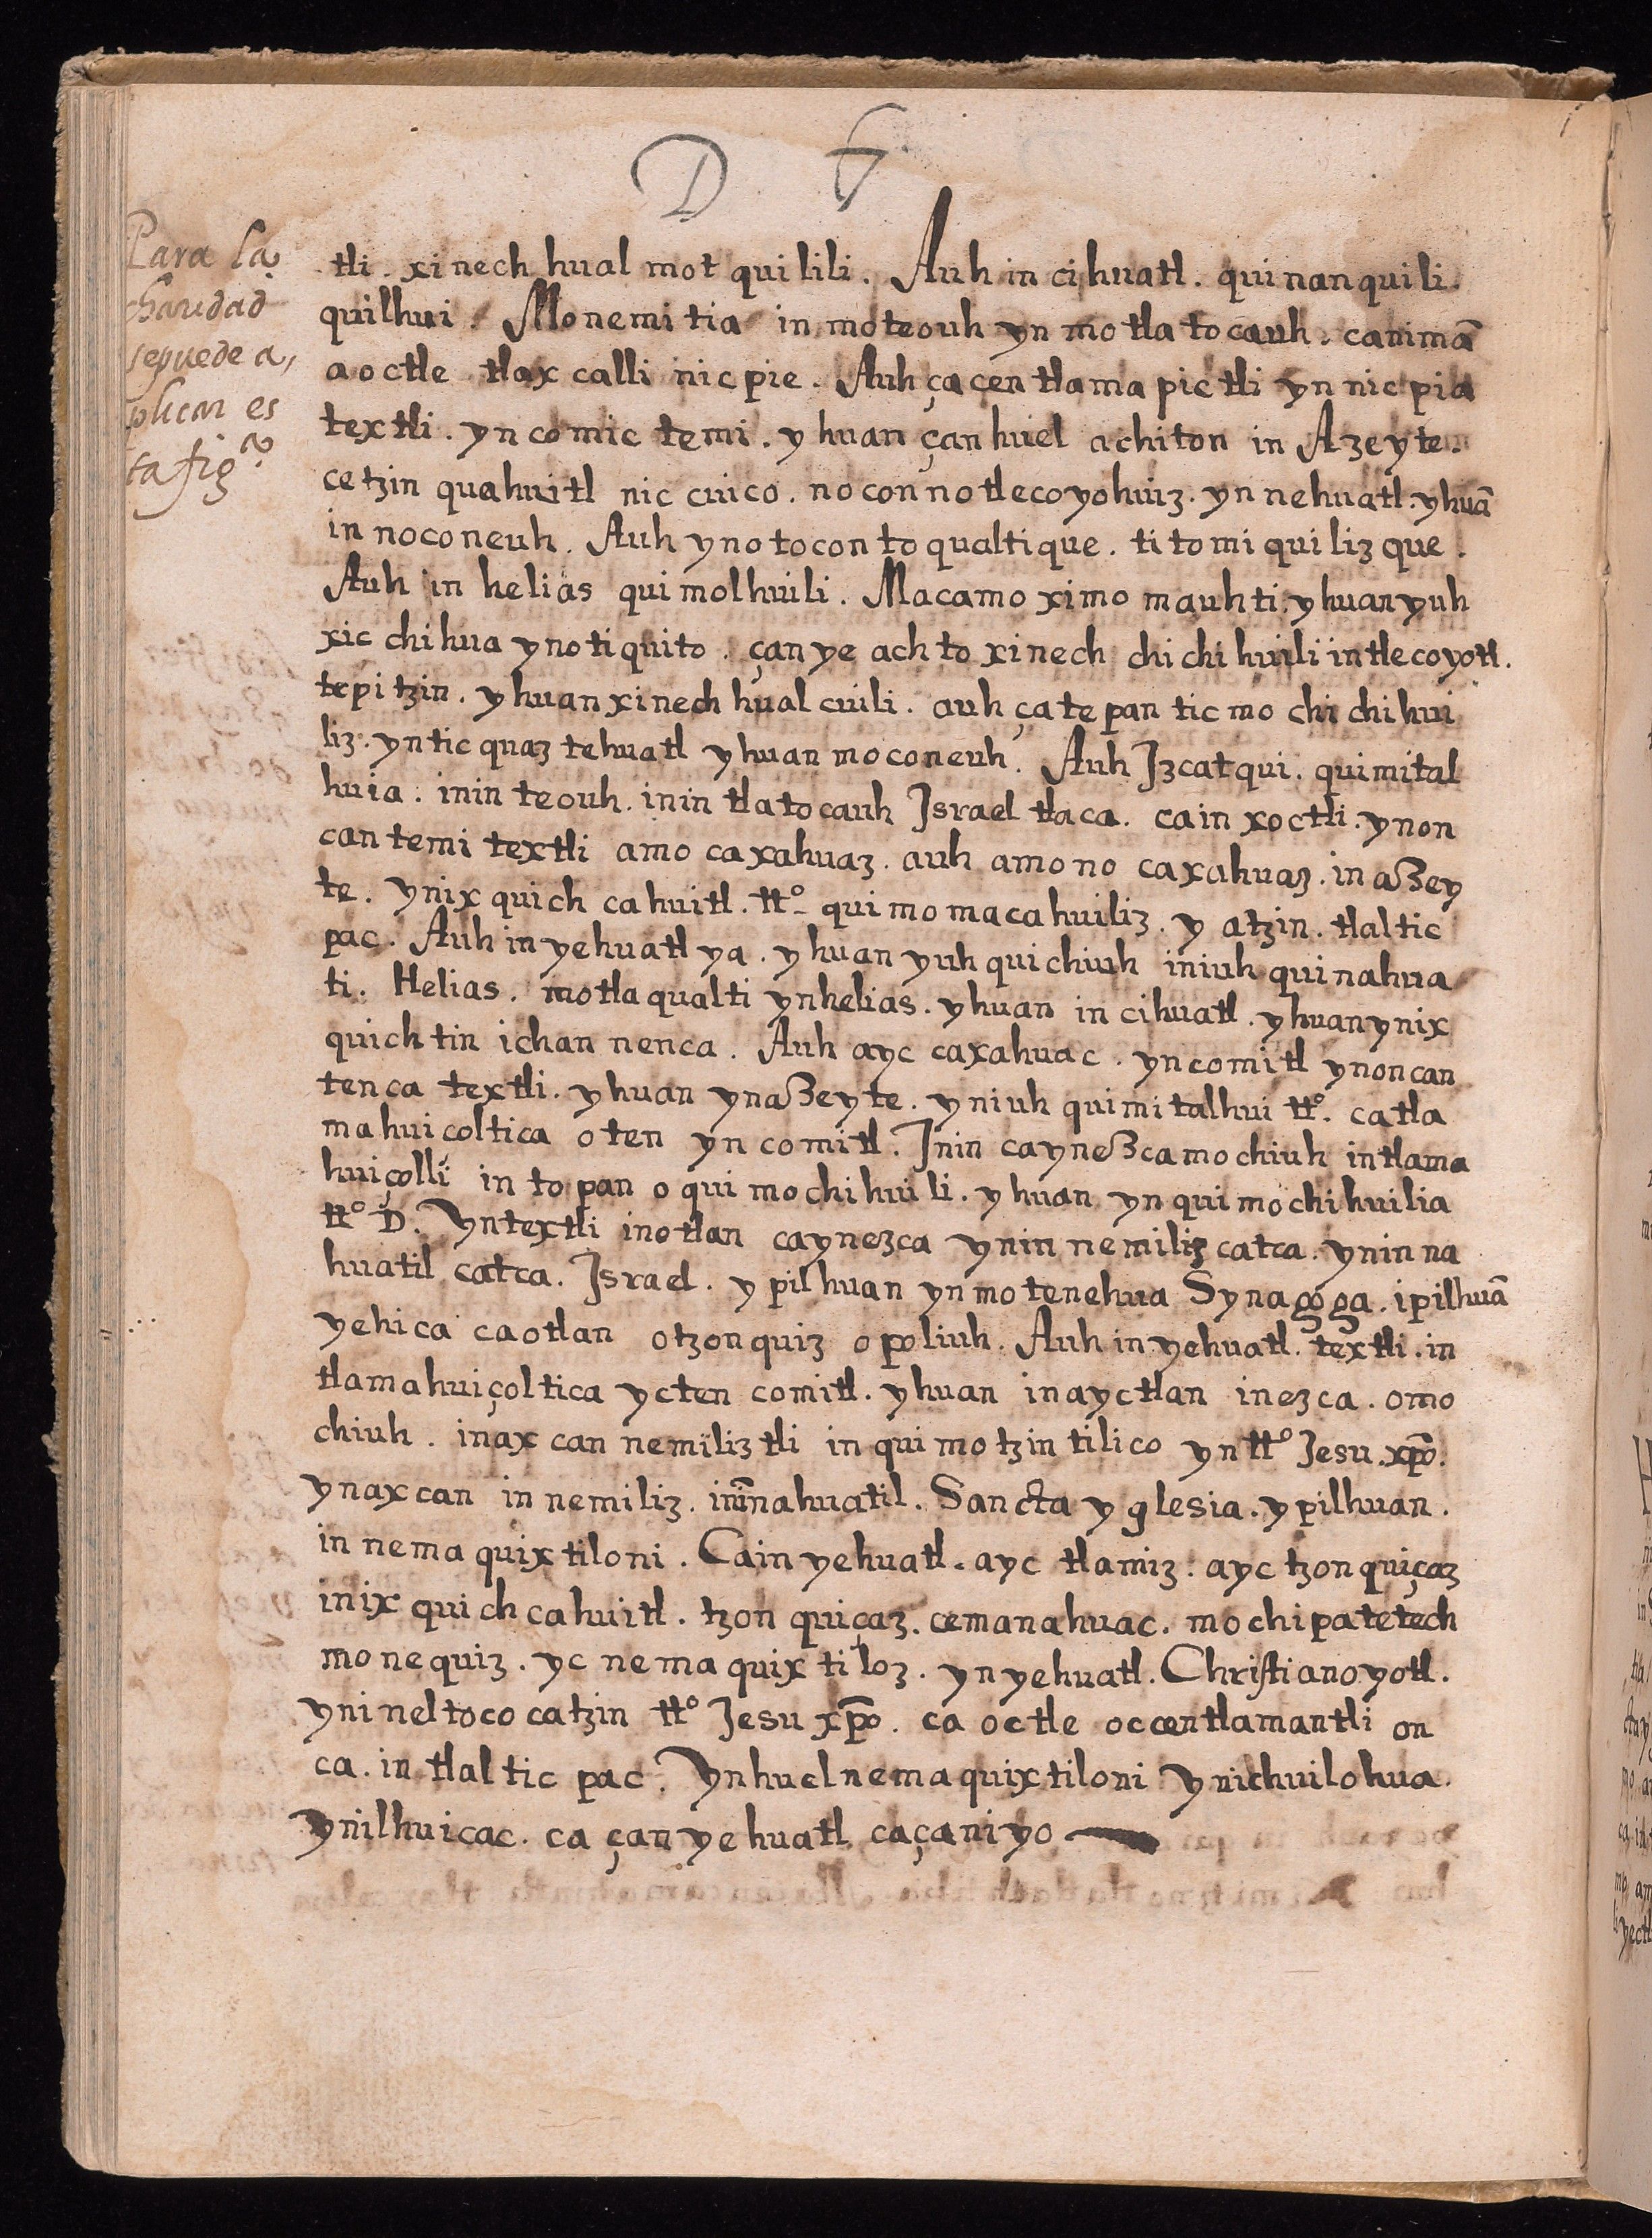 D
Para la
charidad
sepuede a,
plicar es
ta fig.ª
tli. xinech hual mot quilili. Auh in cihuatl. quinanquili.
quilhui. Monemitia in moteouh yn motlatocauh. canimã
aoctle tlaxcalli nicpie. Auh çacentlamapictli yn nicpia
textli. yn comic temi. yhuan çanhuel achiton in Azeyte.
cetzin quahuitl nic cuico. noconnotlecoyohuiz. yn nehuatl. yhuã
in noconeuh. Auh ynotoconto qualtique. titomiquilizque.
Auh in helias quimolhuili. Macamo ximo mauhti. yhuan yuh
xic chihua ynotiquito. çan ye achto xinech chichihuili in tlecoyotl.
tepitzin. yhuan xinech hual cuili. auh çatepan ticmo chichihui
liz. yn tic quaz tehuatl yhuan moconeuh. Auh Izcatqui. quimital
huia. inin teouh. inin tlatocauh Israel tlaca. ca in xoctli. ynon
can temi textli amo caxahuaz. auh amo no caxahuaz. in aZey
te. ynixquich cahuitl. ttº quimomacahuiliz. y atzin. tlaltic
pac. Auh in yehuatl ya. yhuan yuh quichiuh iniuh quinahua
ti. Helias. motlaqualti ynhelias. yhuan in cihuatl. yhuan ynix
quichtin ichan nenca. Auh ayc caxahuac. yn comitl ynoncan
tenca textli. yhuan ynaZeyte. yniuh quimitalhui ttº. catla
mahuicoltica oten yn comitl. Inin cayneZcamochiuh in tlama
huiçolli in topan oquimochihuili. yhuan yn quimochihuilia
ttº D. Yntextli inotlan caynezca ynin nemiliz catca. ynin na
huatil catca. Israel. ypilhuan yn motenehua Synagoga. ipilhuã
yehica caotlan otzonquiz opoliuh. Auh in yehuatl. textli. in
tlamahuiçoltica ycten comitl. yhuan inayctlan inezca. omo
chiuh. inaxcan nemiliztli in quimotzintilico yn ttº Jesu. xp̃o.
ynaxcan in nemiliz. inĩnahuatil. Sancta yglesia. ypilhuan.
in nemaquixtiloni. Cain yehuatl. ayc tlamiz. ayc tzonquiçaz
inixquich cahuitl. tzonquiçaz. cemanahuac. mochipa tetech
monequiz. yc nemaquixtiloz. yn yehuatl. Christianoyotl.
yni neltococatzin ttº Jesu xp̃o. ca octle occentlamantli on
ca. in tlalticpac. Ynhuelnemaquixtiloni ynichuilohua.
ynilhuicac. ca çan yehuatl caçaniyo